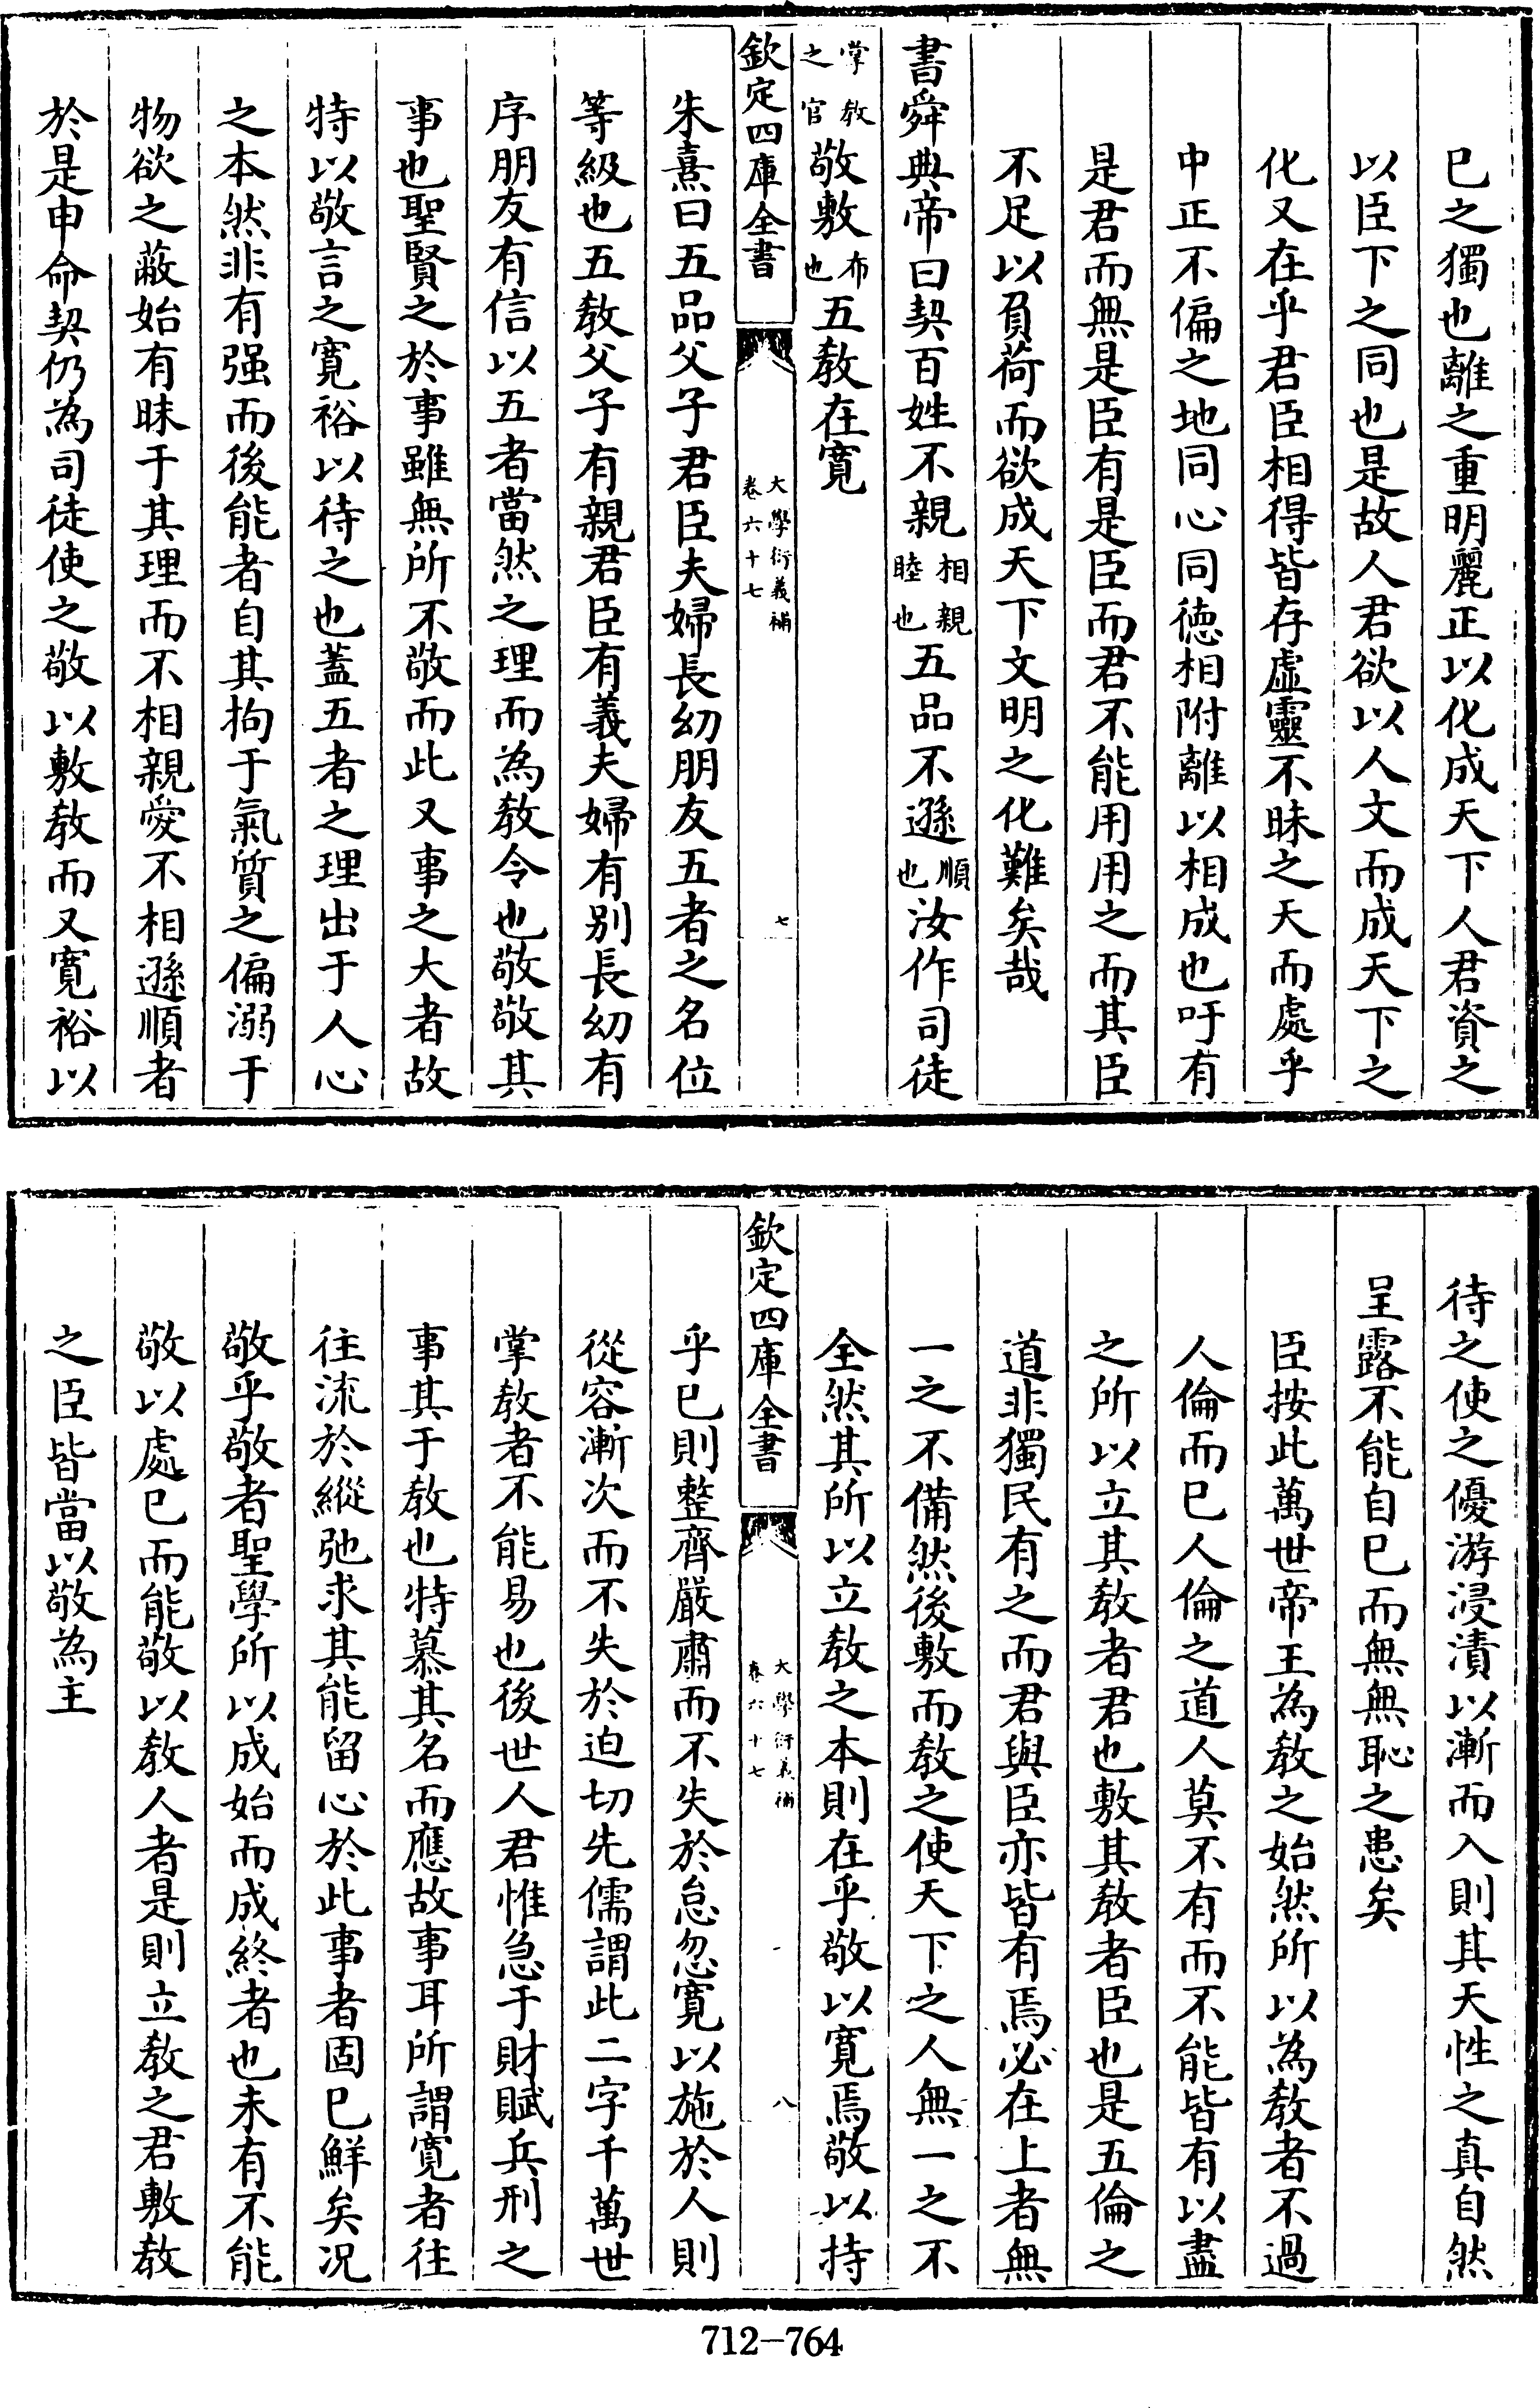 已之獨也離之重明麗正以化成天下人君資之
以臣下之同也是故人君欲以人文而成天下之
化又在乎君臣相得皆存虛靈不昧之天而處乎
中正不偏之地同心同徳相附離以相成也吁有
是君而無是臣有是臣而君不能用用之而其臣
不足以負荷而欲成天下文明之化難矣哉
書舜典帝曰契百姓不親相親睦也五品不遜順也汝作司徒
掌教之官敬敷布也五教在寛
欽定四庫全書
大學衍義補
卷六十七
七
朱熹曰五品父子君臣夫婦長幼朋友五者之名位
等級也五教父子有親君臣有義夫婦有别長幼有
序朋友有信以五者當然之理而為教令也敬敬其
事也聖賢之於事雖無所不敬而此又事之大者故
特以敬言之寛裕以待之也蓋五者之理出于人心
之本然非有强而後能者自其拘于氣質之偏溺于
物欲之蔽始有昧于其理而不相親愛不相遜順者
於是申命契仍為司徒使之敬以敷教而又寛裕以
待之使之優游浸漬以漸而入則其天性之真自然
呈露不能自已而無無恥之患矣
臣按此萬世帝王為教之始然所以為教者不過
人倫而已人倫之道人莫不有而不能皆有以盡
之所以立其教者君也敷其教者臣也是五倫之
道非獨民有之而君與臣亦皆有焉必在上者無
一之不備然後敷而教之使天下之人無一之不
全然其所以立教之本則在乎敬以寛焉敬以持
欽定四庫全書
大學衍義補
卷六十七
八
乎已則整齊嚴肅而不失於怠忽寛以施於人則
從容漸次而不失於迫切先儒謂此二字千萬世
掌教者不能易也後世人君惟急于財賦兵刑之
事其于教也特慕其名而應故事耳所謂寛者往
往流於縱弛求其能留心於此事者固已鮮矣况
敬乎敬者聖學所以成始而成終者也未有不能
敬以處已而能敬以教人者是則立教之君敷教
之臣皆當以敬為主
712-764